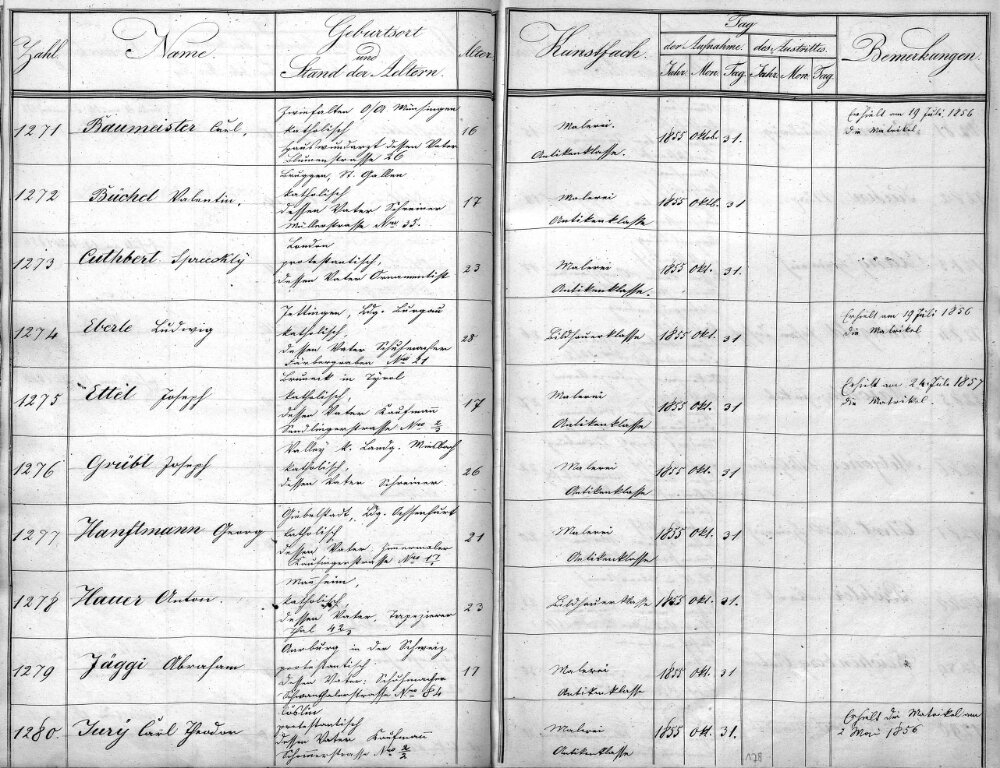 Zahl. Name. Geburtsort und Stand der Aeltern. Alter Kunstfach. Tag der Aufnahme. des Austrittes. Bemerkungen.
Jahr. Mon. Tag. Jahr. Mon. Tag.
1271 Baumeister Carl,
Zwiefalten O/A Münsingen
katholisch
dessen Vater
Blumenstrasse 26
16
Malerei.
Antikenklasse.
1855 Oktb. 31.
Erhielt am 19 Juli 1856
die Matrikel.
1272 Büchel Valentin,
Bruggen, St. Gallen
katholisch
dessen Vater Schreiner
Müllerstrasse Nro 35.
17
Malerei
Antikenklasse
1855 Okt. 31
1273 Cuthbert
London
protestantisch,
dessen Vater Ornamentist
23
Malerei
Antikenklasse.
1855 Okt. 31.
1274 Eberle Ludwig
Jettingen, Ldg. Burgau
katholisch,
dessen Vater Schuhmacher
Färbergraben Nro 21
28
Bildhauerklasse
1855 Okt. 31
Erhielt am 19 Juli 1856
die Matrikel
1275 Ettel Joseph
Bruneck in Tyrol
katholisch,
dessen Vater Kaufmann
Sendlingerstrasse Nro
17
Malerei
Antikenklasse
1855 Okt. 31
Erhielt am 24. Juli 1857
die Matrikel.
1276 Grübl Joseph
Valley k. Landg. Miesbach
katholisch,
dessen Vater Schreiner
26
Malerei
Antikenklasse
1855 Okt. 31
1277 Hanftmann Georg
Giebelstadt, Ldg. Ochsenfurt
katholisch
dessen Vater
Nro 17
21
Malerei
Antikenklasse
1855 Okt. 31
1278 Hauer Anton.
Mannheim,
katholisch,
dessen Vater, Tapezierer
Thal
23
Bildhauerklasse
1855 Okt. 31.
1279 Jäggi Abraham
Aarburg in der Schweiz
protestantisch
dessen Vater, Schuhmacher
Schwanthalerstrasse Nro 84
17
Malerei
Antikenklasse
1855 Okt. 31
1280 Jury Carl Theodor
Cöslin
protestantisch
dessen Vater Kaufmann
Nro
22
Malerei
Antikenklasse
1855 Okt. 31.
Erhielt die Matrikel am
2 Mai 1856
128